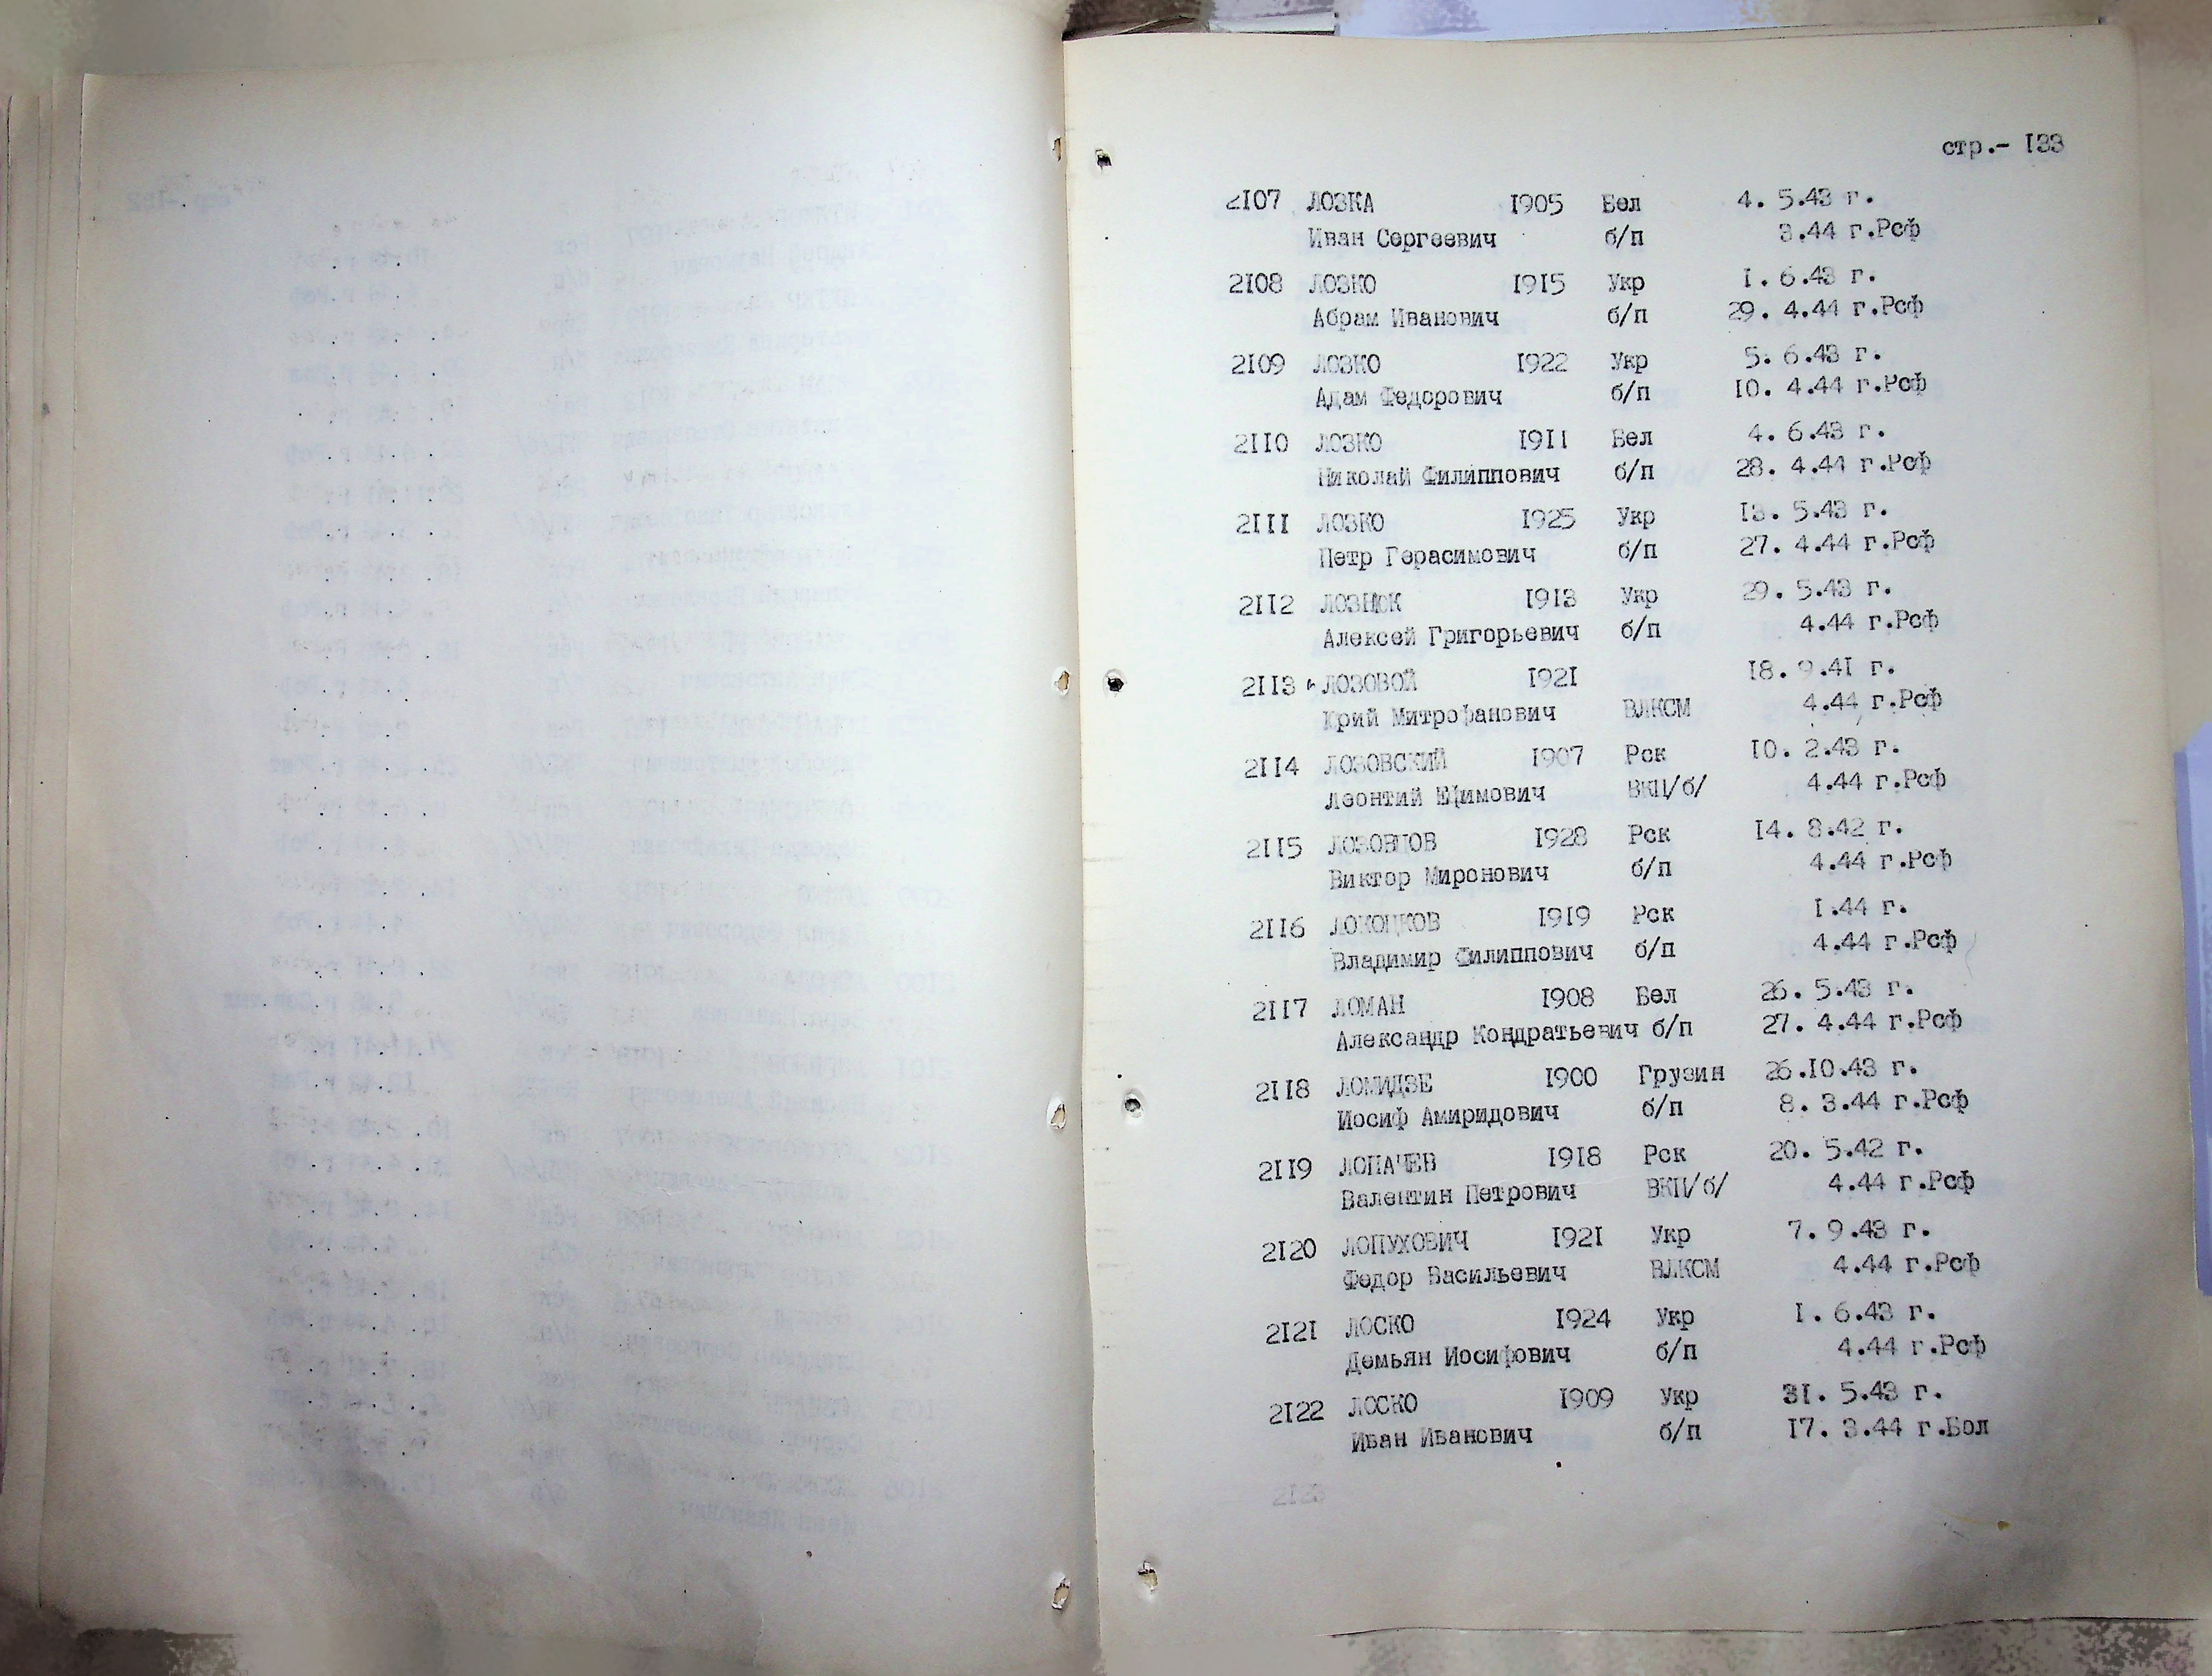 стр.- 133
2107 ЛОЗКА 1905 Бел 4. 5.43 г.
Иван Сергеевич б/п 3.44 г.Рсф
2108 ЛОЗКО 1915 Укр 1. 6.43 г.
Абрам Иванович б/п 29. 4.44 г.Рсф
2109 ЛОЗКО 1922 Укр 5. 6.43 г.
Адам Федорович б/п 10. 4.44 г.Рсф
2110 ЛОЗКО 1911 Бел 4. 6.43 г.
Николай Филиппович б/п 28. 4.44 г.Рсф
2111 ЛОЗКО 1925 Укр 13. 5.43 г.
Петр Герасимович б/п 27. 4.44 г.Рсф
2112 1913 Укр 29. 5.43 г.
Алексей Григорьевич б/п 4.44 г.Рсф
2113 ЛОЗОВОЙ 1921 18. 9.41 г.
Юрий Митрофанович ВЛКСМ 4.44 г.Рсф
2114 ЛОЗОВСКИЙ 1907 Рск 10. 2.43 г.
Леонтий Ефимович ВКП/б/ 4.44 г.Рсф
2115 1928 Рск 14. 8.42 г.
Виктор Миронович б/п 4.44 г.Рсф
2116 1919 Рск 1.44 г.
Владимир Филиппович б/п 4.44 г.Рсф
2117 ЛОМАН 1908 Бел 26. 5.43 г.
Александр Кондратьевич б/п 27. 4.44 г.Рсф
2118 ЛОМИДЗЕ 1900 Грузин 26.10.43 г.
Иосиф Амиридович б/п 8. 3.44 г.Рсф
2119 ЛОПАЧЕВ 1918 Рск 20. 5.42 г.
Валентин Петрович ВКП/б/ 4.44 г.Рсф
2120 ЛОПУХОВИЧ 1921 Укр 7. 9.43 г.
Федор Васильевич ВЛКСМ 4.44 г.Рсф
2121 ЛОСКО 1924 Укр 1. 6.43 г.
Демьян Иосифович б/п 4.44 г.Рсф
2122 ЛОСКО 1909 Укр 31. 5.43 г.
Иван Иванович б/п 17. 3.44 г.Бол
2123